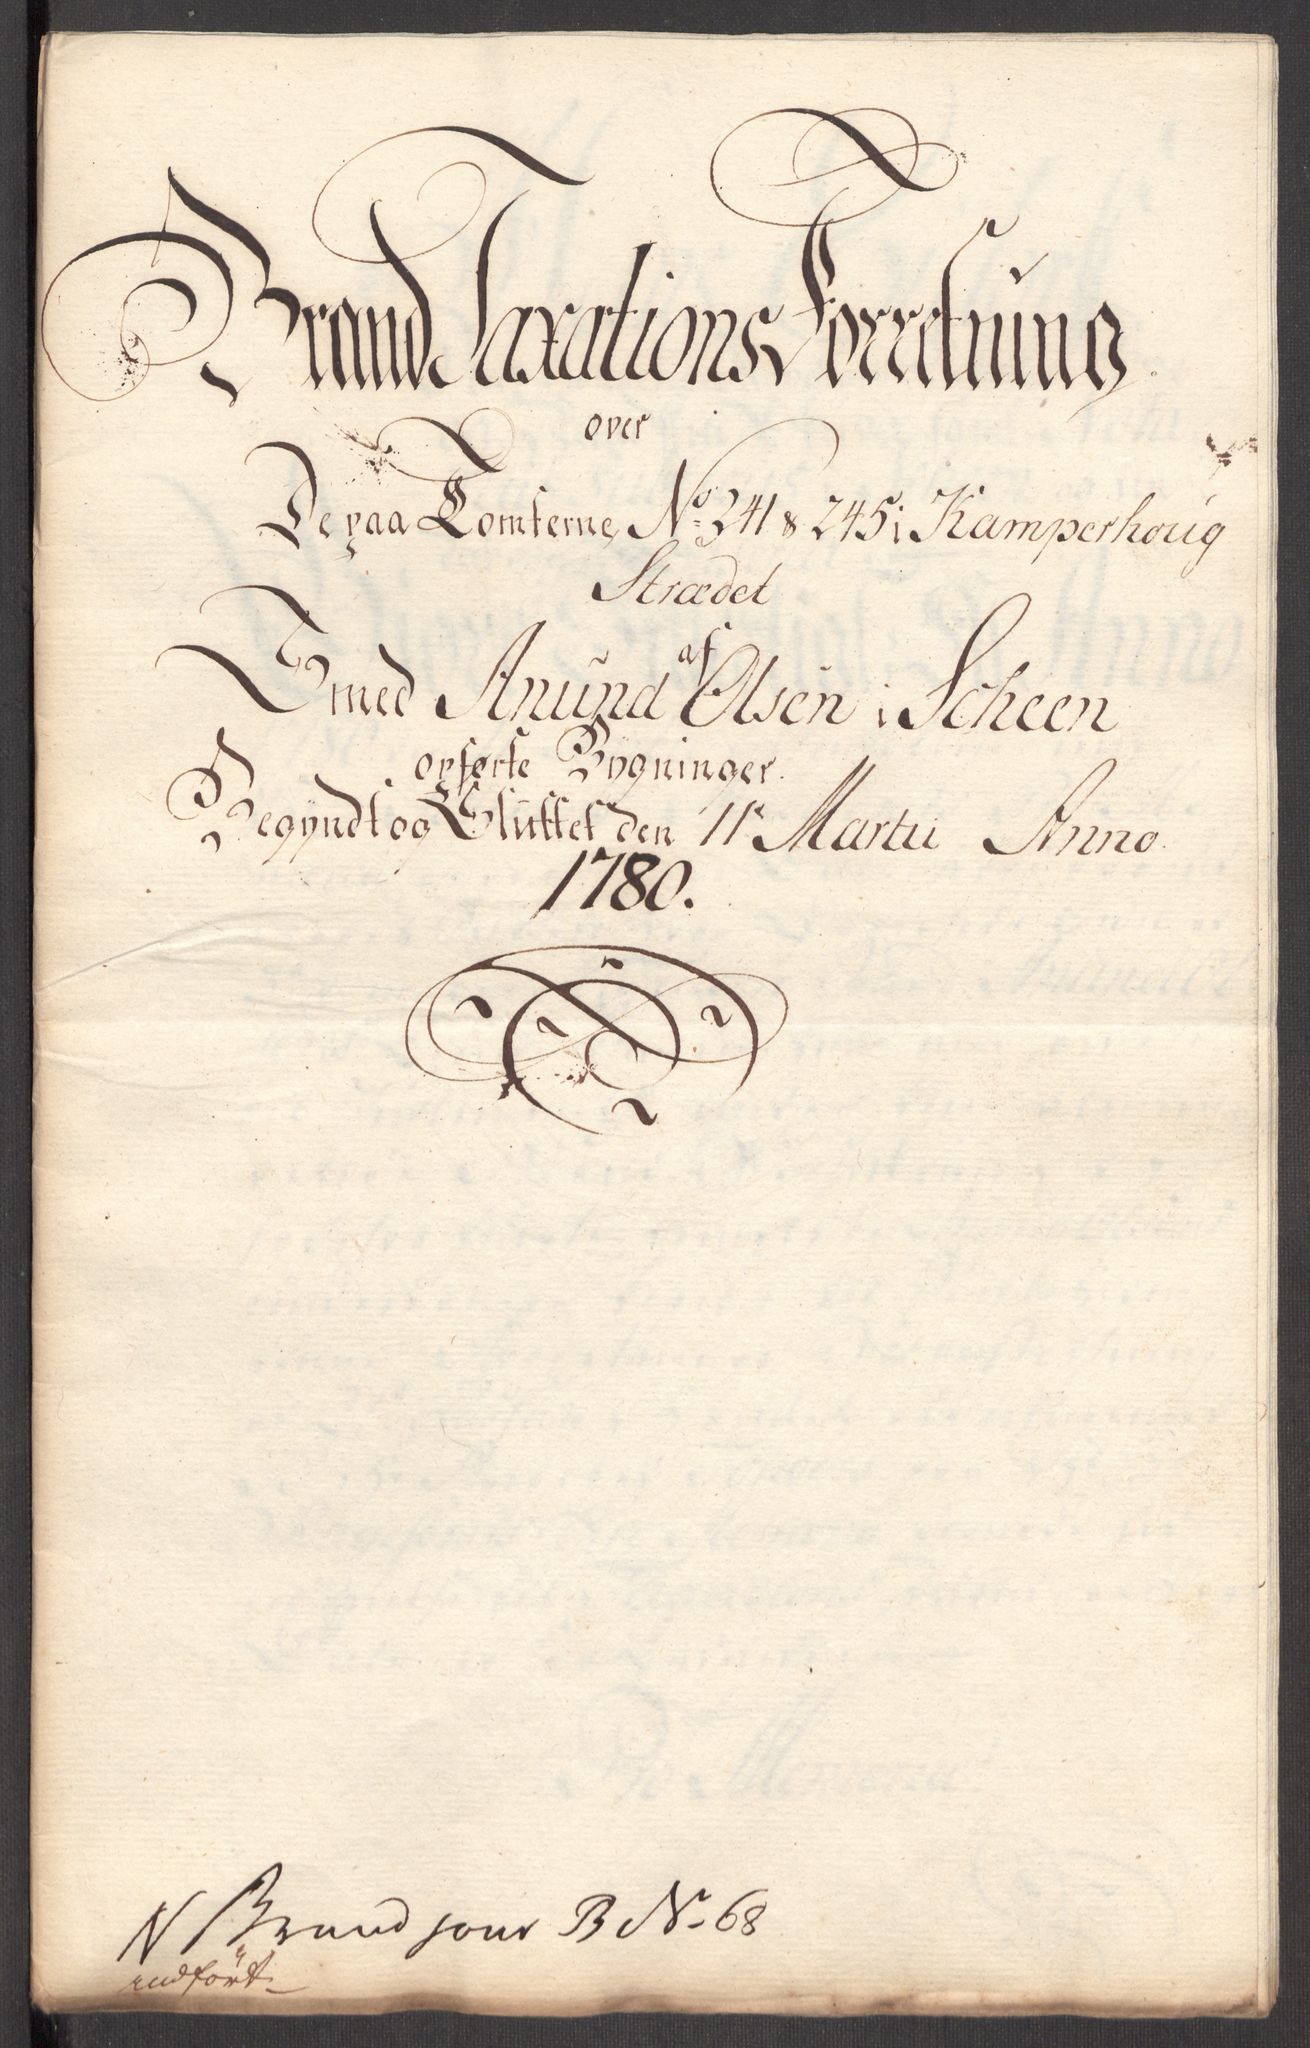 Brand Taxations Forretning
over
De paa Tomterne No 241 & 245 i Kamperhoug
Strædet
af
Smed Anund Olsen i Scheen
opførte Bygninger.
Begyndt og Sluttet den 11te Martii Anno
1780.
N Brand jour B No 68
indført